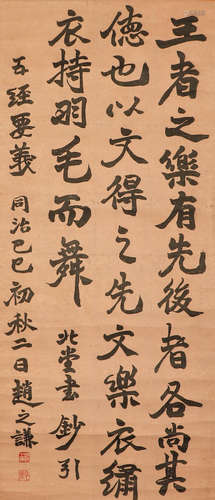 王者之樂有先後者各尚其
德也以文得之先文樂衣繡
衣持羽毛而舞 北堂書鈔引
五經要義 同治己巳初秋二日趙之謙